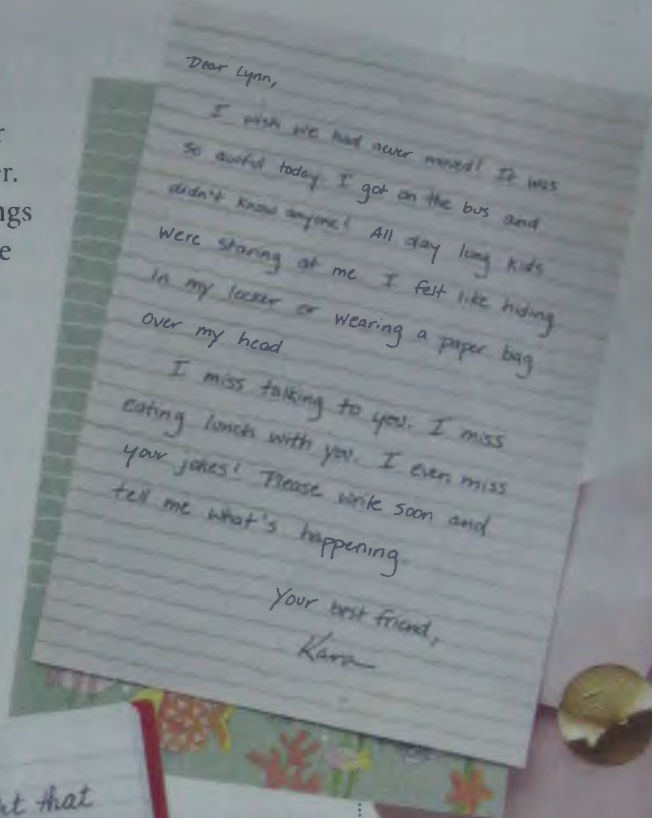 Dear Lynn,
I wish we had never moved! It was
so awful today. I got on the bus and
didn't know anyone! All day long kids
were staring at me. I felt like hiding
in my locker or wearing a paper bag
over my head
I miss talking to you. I miss
eating lunch with you. I even miss
your jokes! Please write soon and
tell me what's happening.
Your best friend,
Kara
that